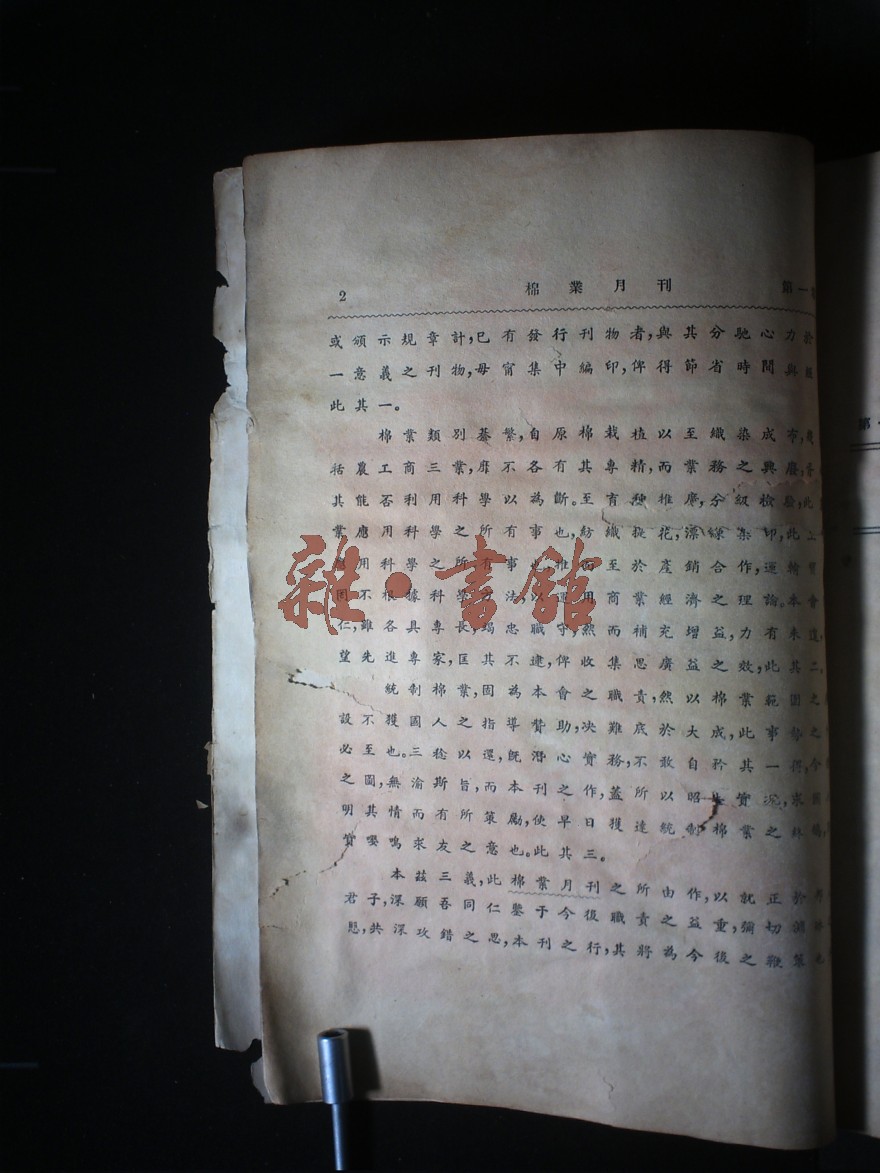 2 棉業月刊 第一
或頒示規章計,已有發行刊物者,與其分馳心力於
一意義之刊物,毋甯集中編印,俾得節省時間與
此其一。
棉業類別綦繁,自原棉栽植以至織染成布,
括農工商三業,靡不各有其專精,而業務之興廢,
其能否利用科學以為斷。至育種推廣,分級檢驗,此
業應用科學之所有事也,紡織提花,漂練染印,此工
應用科學之所有事也,推而至於產銷合作,運輸
固不根據科學方法,以運用商業經濟之理論。本會
仁,雖各具專長,竭忠職守,然而補充增益,力有未逮,
望先進專家,匡其不逮,俾收集思廣益之效,此其二。
統制棉業,固為本會之職責,然以棉業範圍之
設不獲國人之指導贊助,决難底於大成,此事勢之
必至也。三稔以還,旣潛心實務,不敢自矜其一得,今
之圖,無渝斯旨,而本刊之作,蓋所以昭實況,求
明其情而有所策勵,使早日獲達統制棉業之
實嚶鳴求友之意也。此其三。
本茲三義,此棉業月刊之所由作,以就正於
君子,深願吾同仁鑒于今後職責之益重,彌切
惕,共深攻錯之思,本刊之行,其將為今後之鞭策
雜·書館